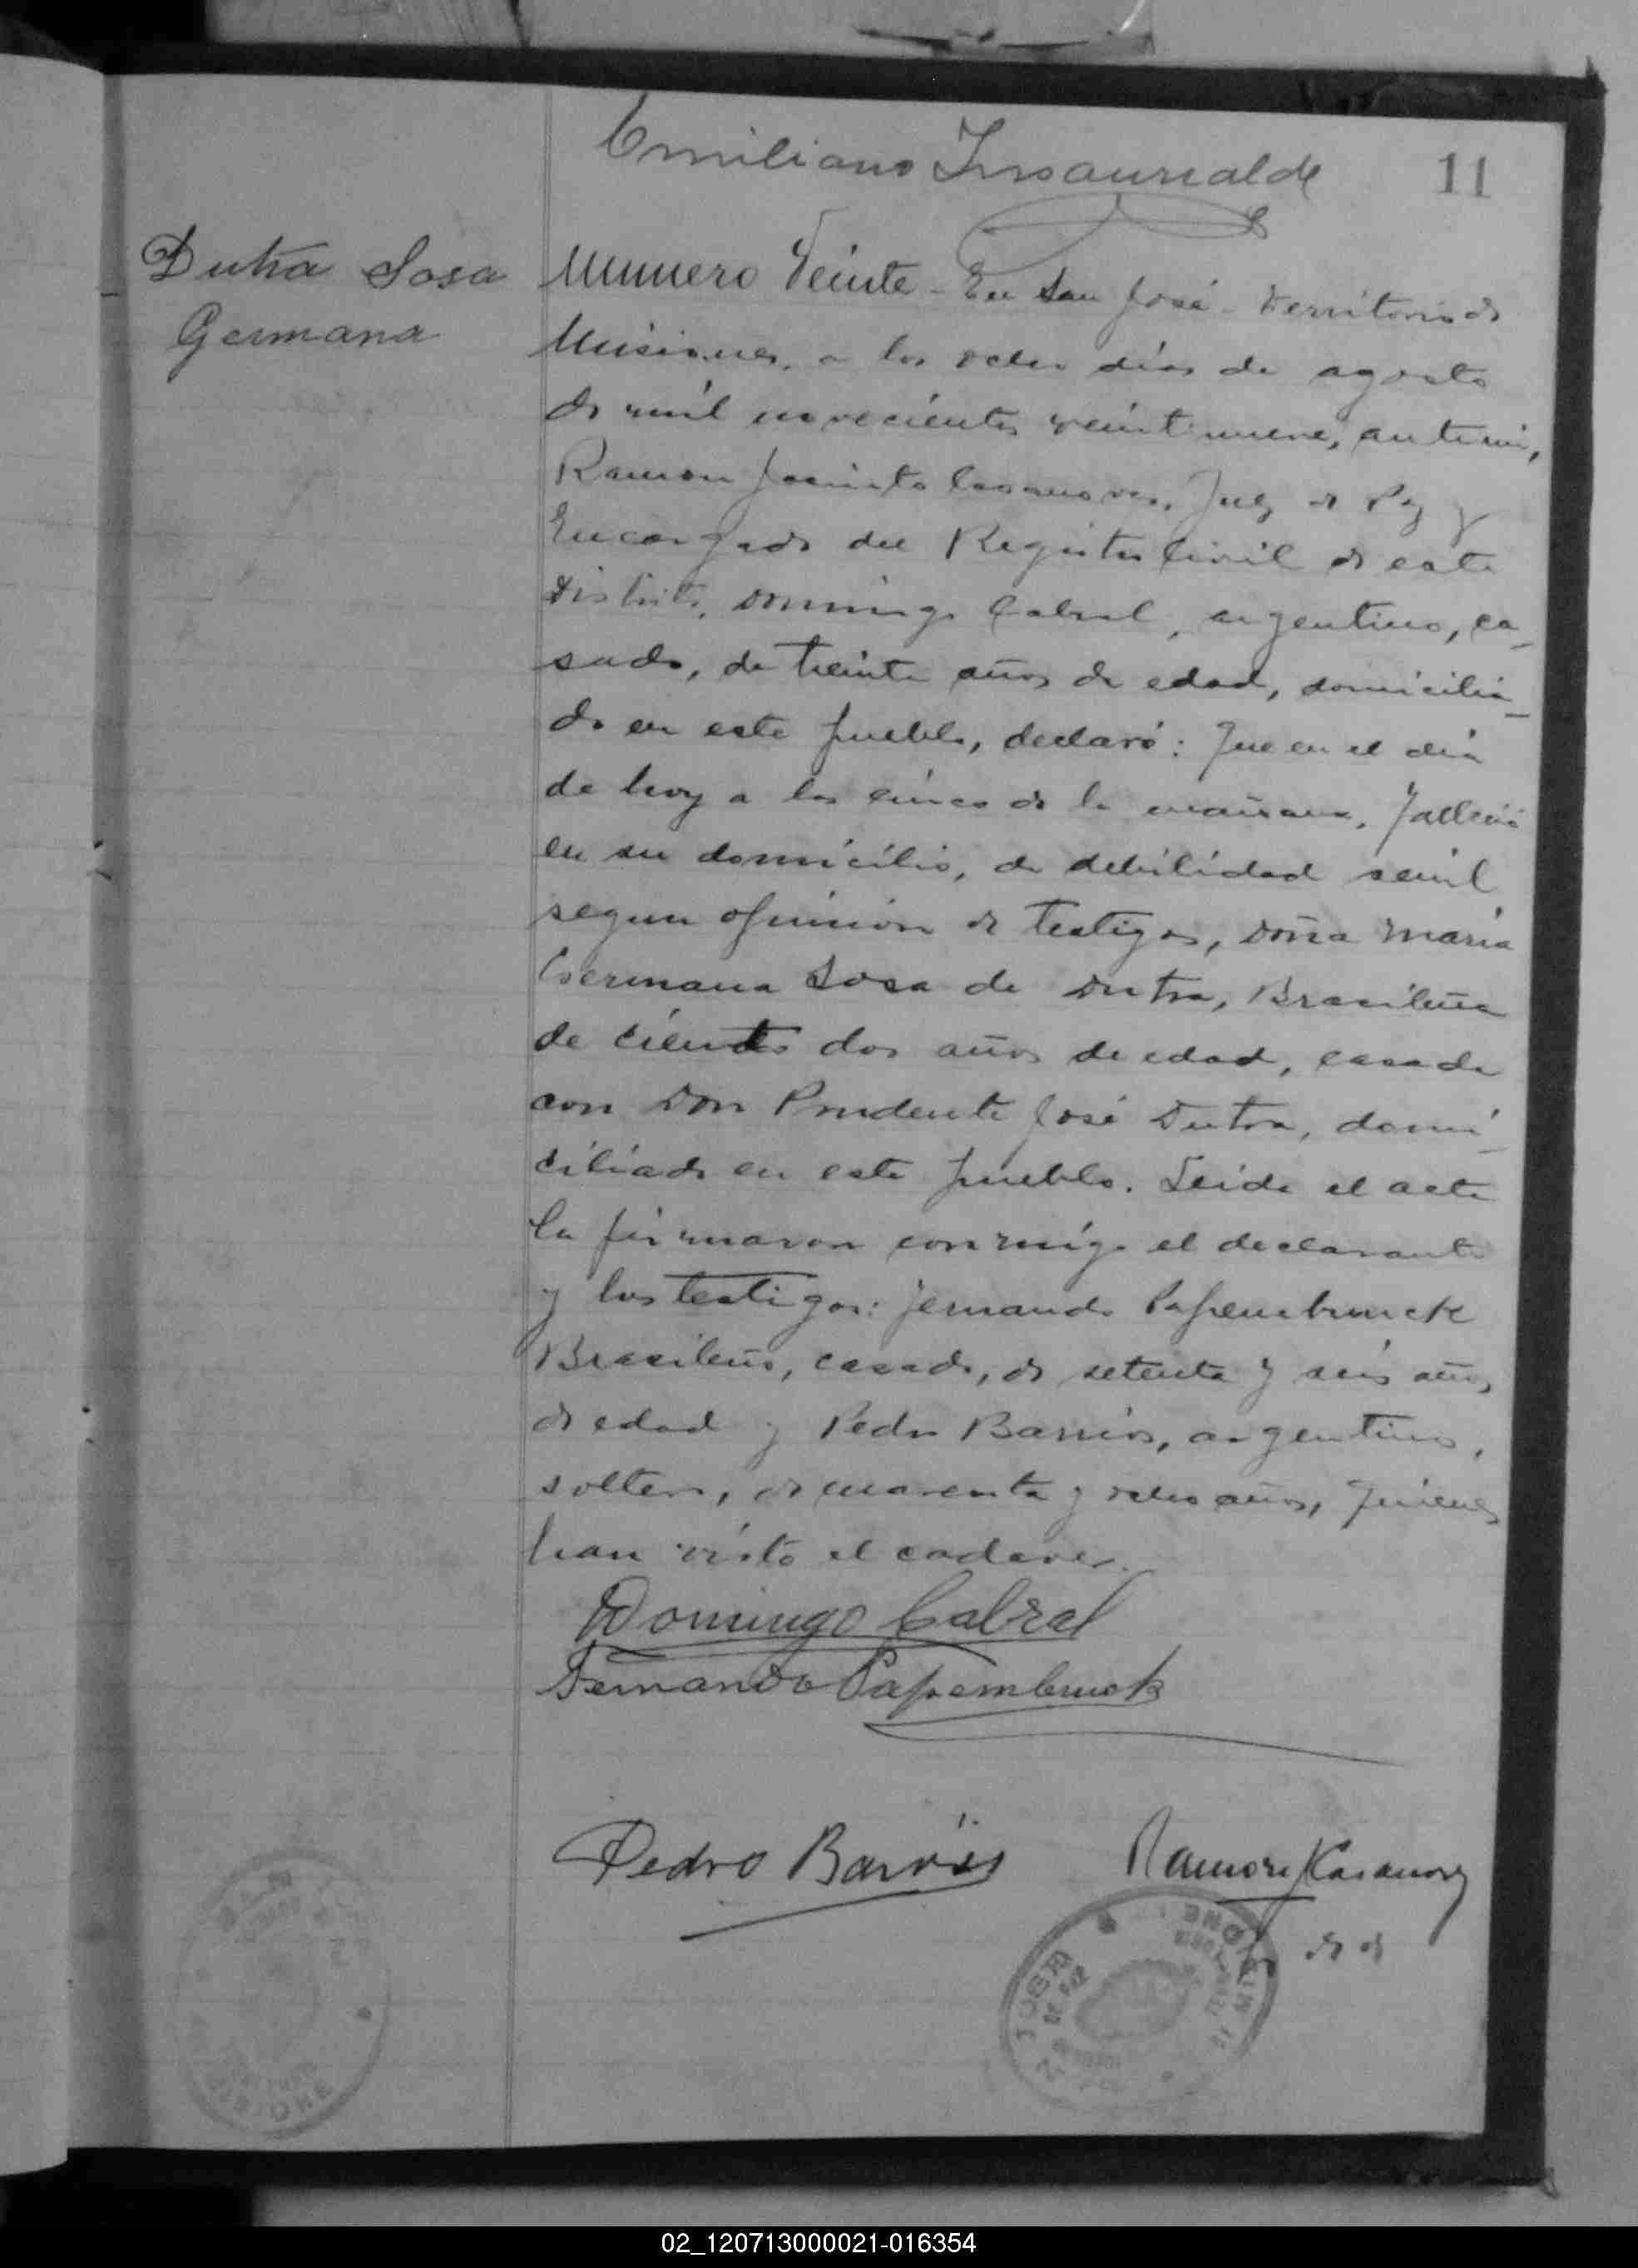 Emiliano Insaurralde
11
Dutra Sosa
Germana
Numero Veinte - En San José - Territorio de
Misiones, a los ocho días de agosto
de mil novecientos veintinueve, ante mi,
Ramon Jacinto Casanova, Juez de Paz y
Encargado del Registro Civil de este
Distrito, Domingo Cabral, argentino, ca_
sado, de treinta años de edad, domicilia_
do en este pueblo, declaró: Que en el día
de hoy a las cinco de la mañana, falleció
en su domicilio, de debilidad senil
segun opinión de testigos, Doña María
Germana Sosa de Dutra, Brasileña
de ciento dos años de edad, casada
con Don Prudente José Dutra, domi_
ciliado en este pueblo. Leida el acta
la firmaron conmigo el declarante
y los testigos: Fernando Papembruck
Brasileño, casado, de setenta y seis años
de edad y Pedro Barrios, argentino,
soltero, de cuarenta y ocho años, quienes
han visto el cadaver.
Domingo Cabral
Fernando Papembruck
Pedro Barrios
Ramon J Casanova
JUZGADO DE PAZ
MISIONES
02_120713000021-016354